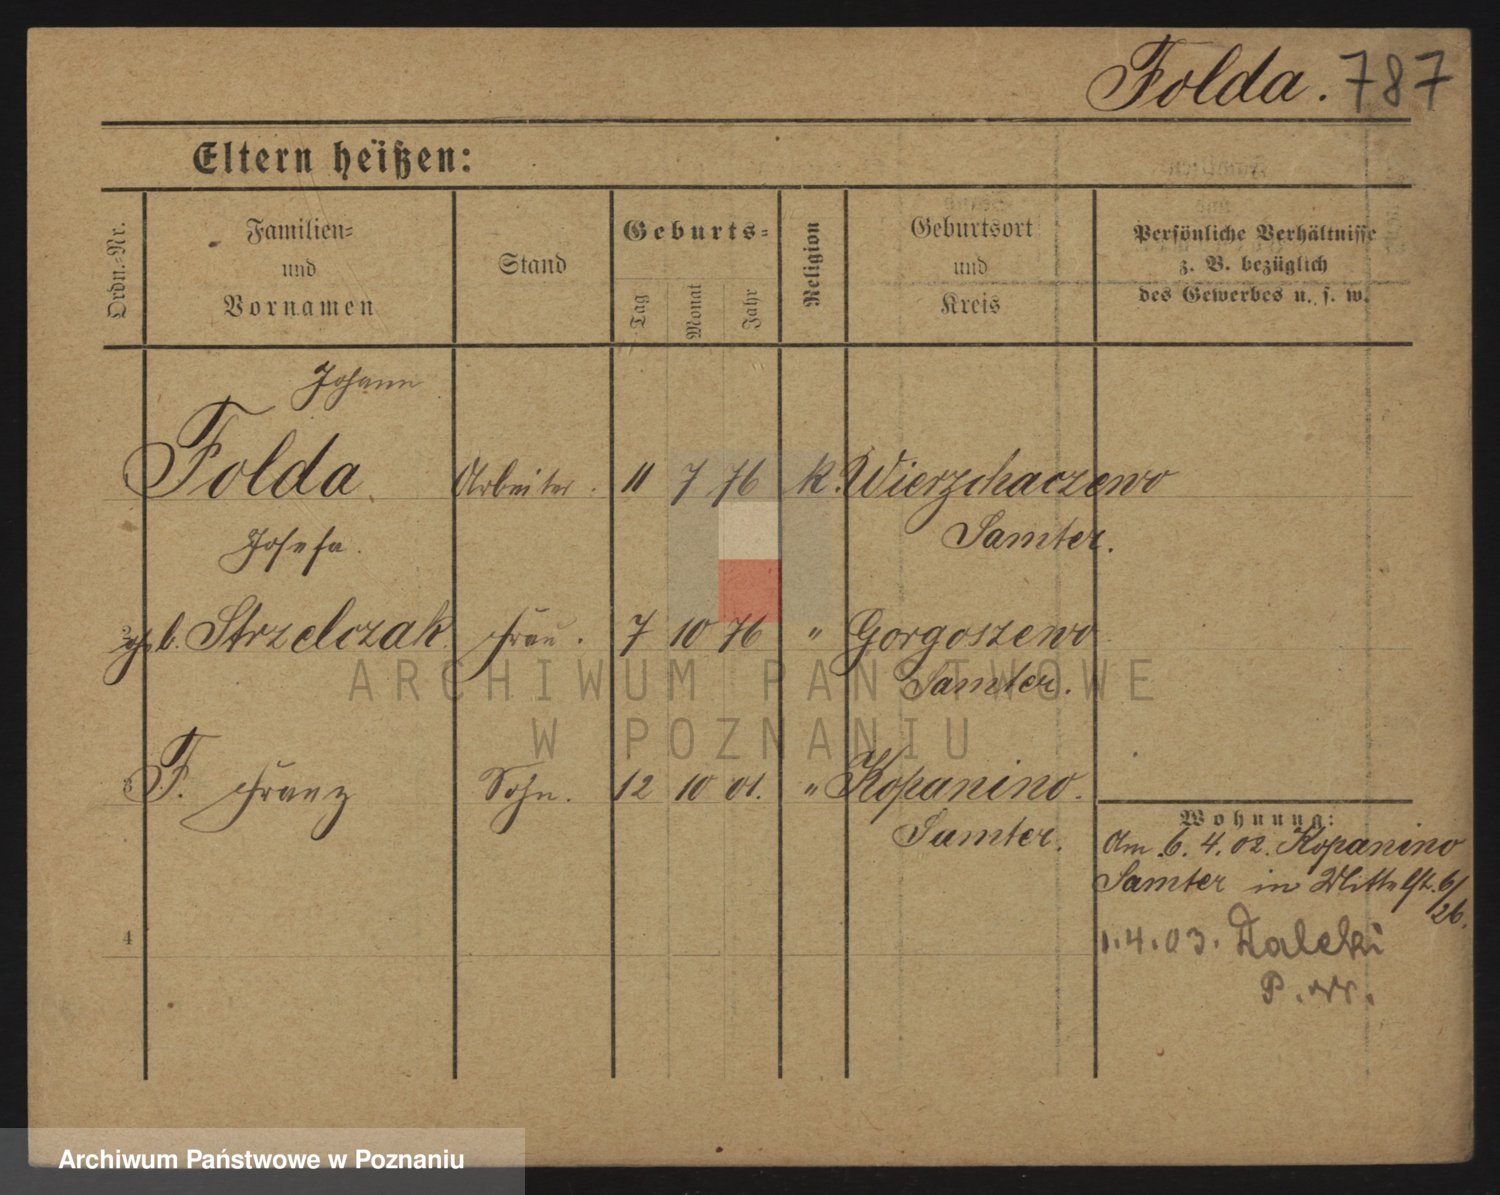 Folda. 787
Eltern heißen:
Ordn.-Nr.
Familien-
und
Vornamen
Stand
Geburts-
Tag
Monat
Jahr
Religion
Geburtsort
und
Kreis
Persönliche Verhältnisse
z. B. bezüglich
des Gewerbes u. s. w.
Johann
Folda Arbeiter. 11 7 76 k. Wierzchaczewo
Samter.
Josefa.
2 geb. Strzelczak Frau. 7 10 76 " Gorgoszewo
Samter.
3 F. Franz Sohn. 12 10 01. " Kopanino.
Samter.
Wohnung:
Am 6. 4. 02. Kopanino
Samter in Mittelstr. 6/
26.
4
1.4.03. Zalecki
ARCHIWUM PAŃSTWOWE
W POZNANIU
Archiwum Państwowe w Poznaniu